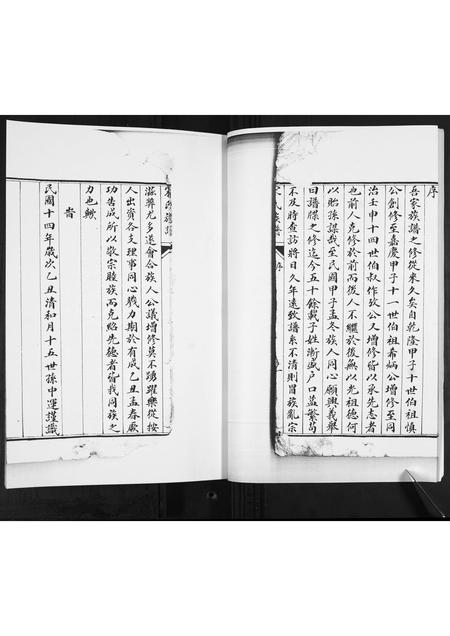 序
吾家族譜之修從來久矣自乾隆甲子十世伯祖慎
公創修至嘉慶甲子十一世伯祖希炳公增修至同
治壬申十四世伯叔作攽公又增修皆以承先志者
也前人克修於前而後人不繼於後無以光祖德何
以貽孫謀哉至民國甲子孟冬族人同心願興義舉
曰譜牒之修迄今五十餘載子姓漸盛戶口益繁苟
不及時查訪將日久年遠致譜系不清則冒族亂宗
氏族譜
序
滋弊尤多遂會合族人公議增修莫不踴躍樂從按
人出資各支理事同心戮力期於有成乙丑孟春厥
功告成所以敬宗睦族而克紹先德者皆我同族之
力也歟
旹
民國十四年歲次乙丑清和月十五世孫中運謹識